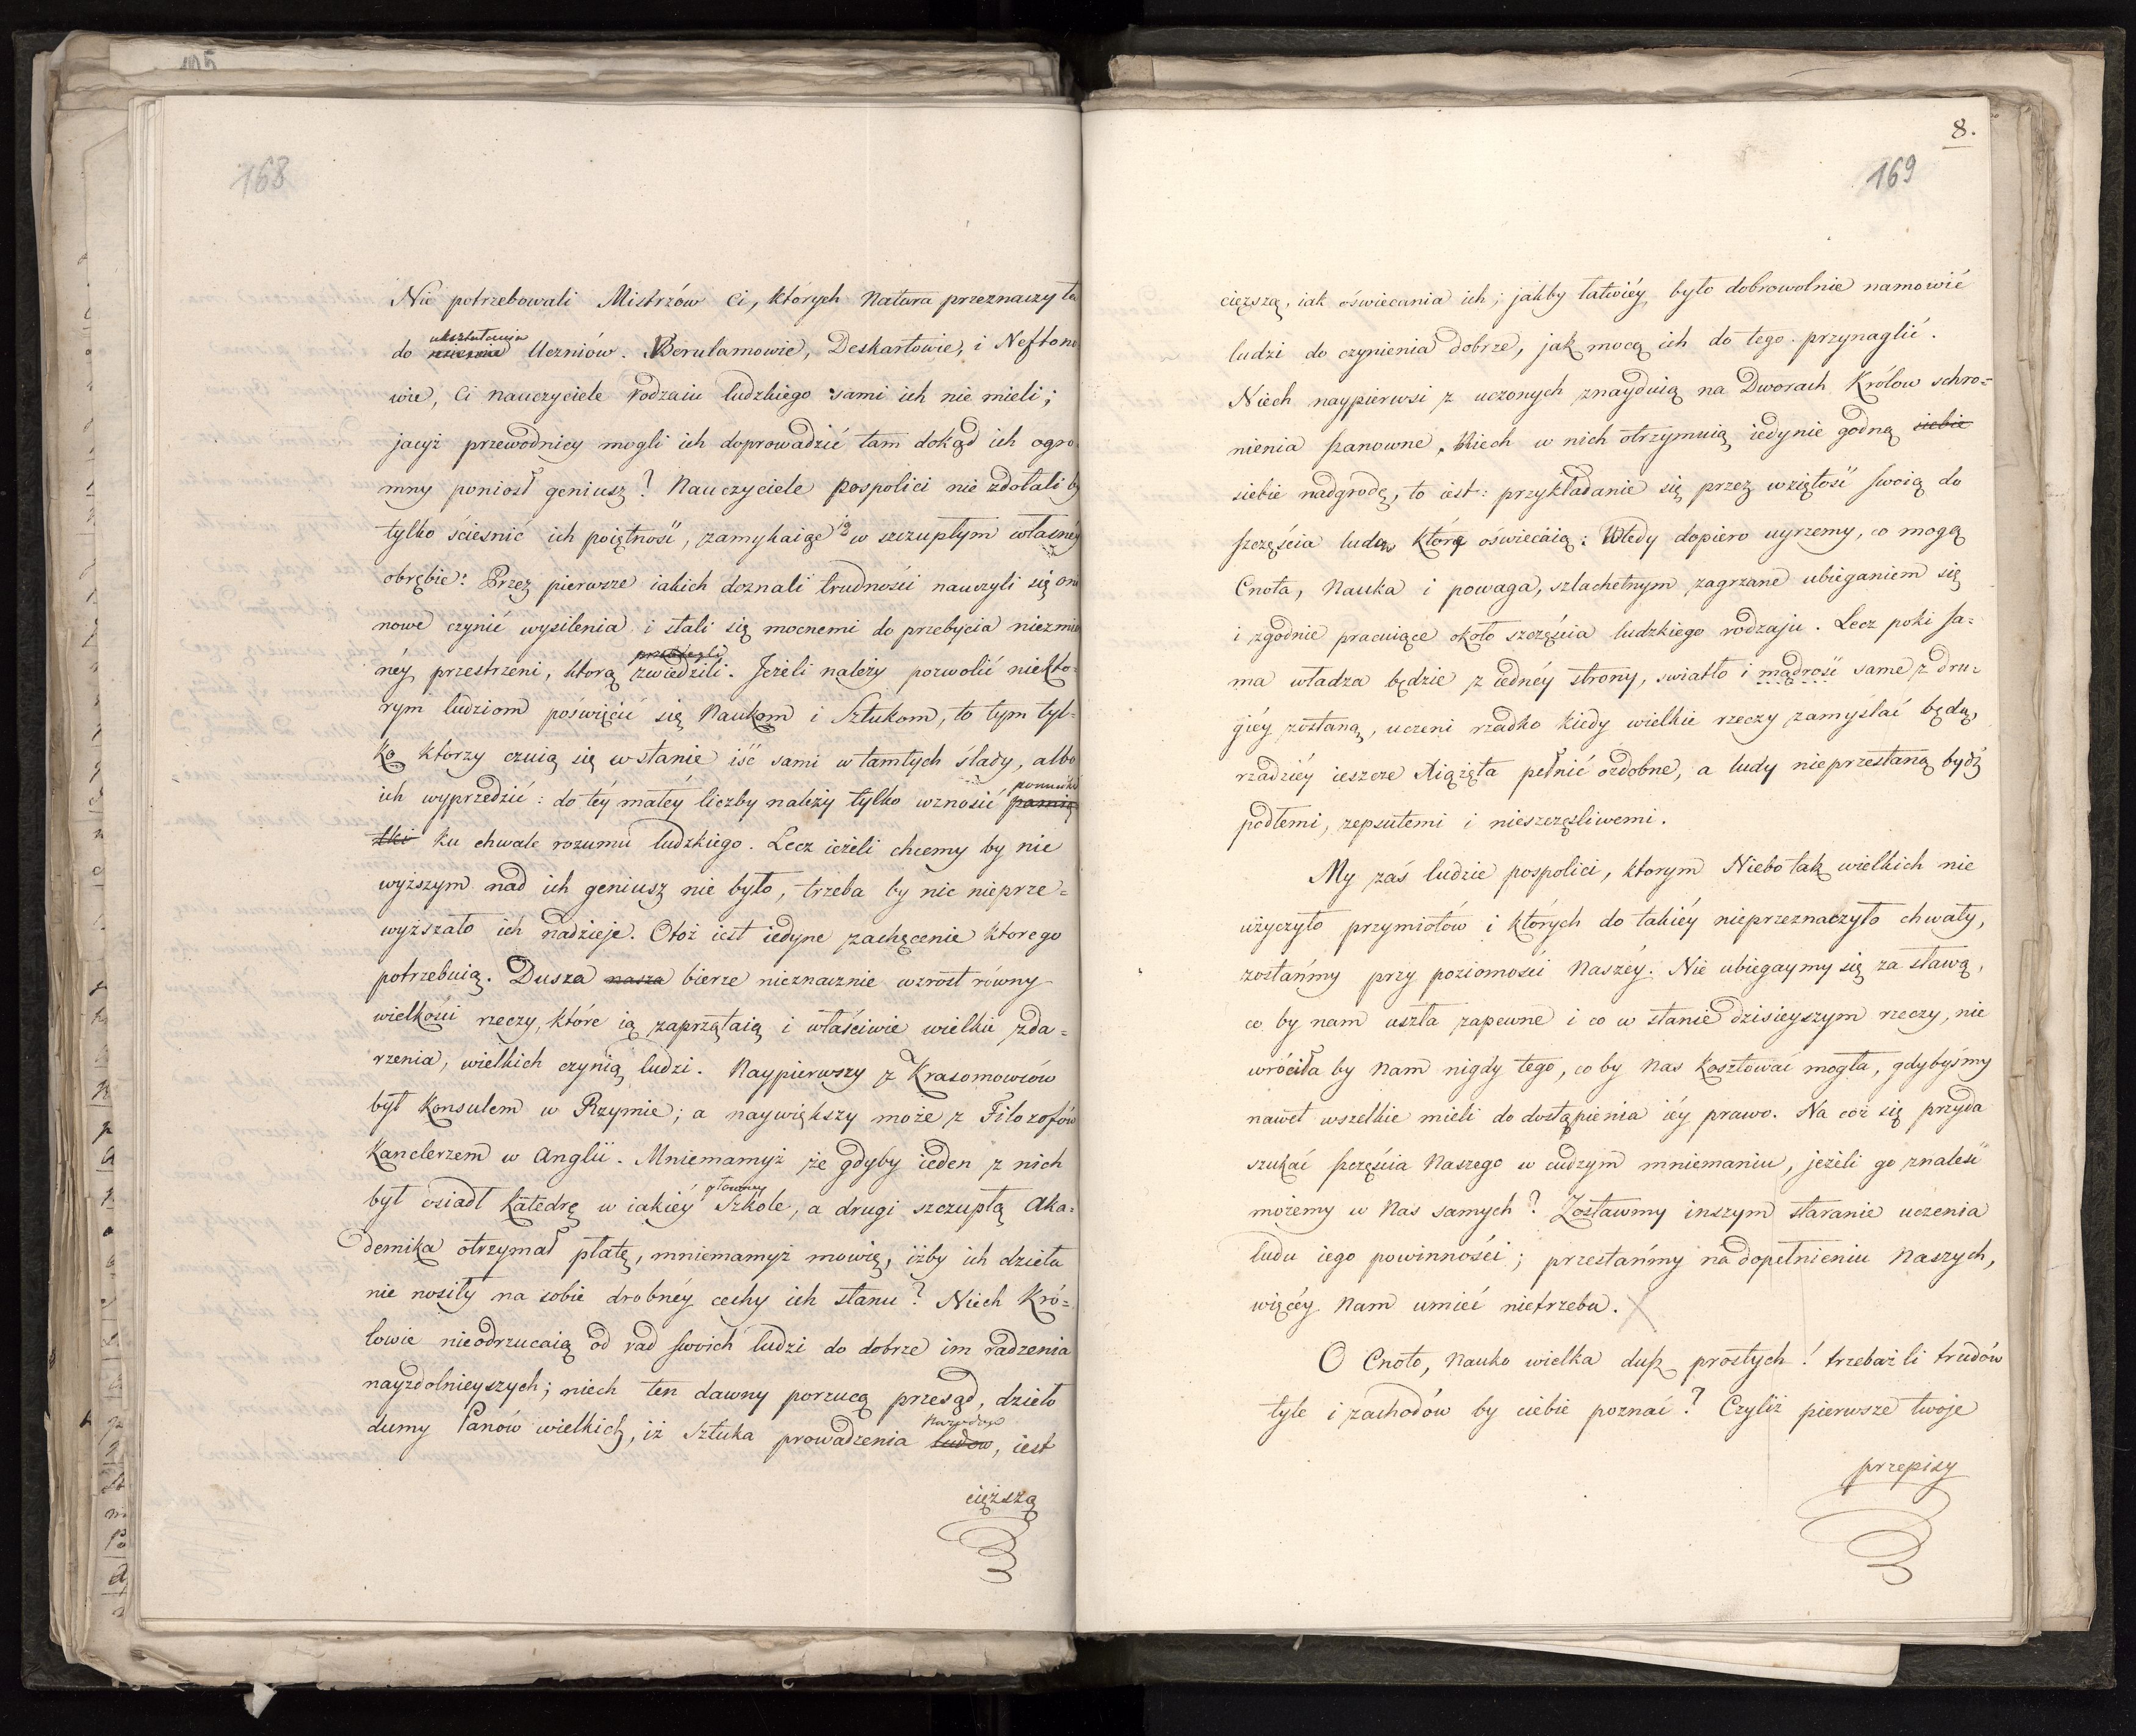 168
Nie potrzebowali Mistrzów Ci, których Natura przeznaczyła
ukształcenia
do Uczniów. Werulamowie, Deskartowie, i Neftono
wie, Ci nauczyciele rodzaiu ludzkiego sami ich nie mieli;
jacyż przewodnicy mogli ich doprowadzić tam dokąd ich ogro
mny poniosł geniusz? Nauczyciele pospolici nie zdołali by
tylko ściesnić ich poiętność, zamykaiąc ią w szczupłym własnéy
obrębie: Przez pierwsze iakich doznali trudności nauczyli się oni
nowe czynić wysilenia i stali się mocnemi do przebycia niezmie
przebiegli
rnéy przestrzeni, ktorą zwiedzili. Jeżeli należy pozwolić niekto-
rym ludziom poświęcić się Naukom i Sztukom, to tym tyl-
ko ktorzy czuią się w stanie iść sami w tamtych ślady, albo
pomniki
ich wyprzedzić: do téy małéy liczby należy tylko wznosić pamią
tki ku chwale rozumu ludzkiego. Lecz ieżeli chcemy by nic
wyższym nad ich geniusz nie było, trzeba by nic nieprze=
wyższało ich nadzieje. Otoż iest iedyne zachęcenie ktorego
potrzebuią. Dusza nasza bierze nieznacznie wzrost równy
wielkości rzeczy, które ią zaprzątaią i właściwie wielkie zda=
rzenia, wielkich czynią ludzi. Naypierwszy z Krasomowców
był Konsulem w Rzymie; a naywiększy może z Filozofów
Kanclerzem w Anglii. Mniemamyż że gdyby ieden z nich
głowney
był osiadł Katedrę w iakiéy Szkole, a drugi szczupłą Aka=
demika otrzymał płatę, mniemamyż mowię, iżby ich dzieła
nie nosiły na sobie drobnéy cechy ich stanu? Niech Kró=
lowie nieodrzucaią od rad swoich ludzi do dobrze im radzenia
nayzdolnieyszych; niech ten dawny porzucą przesąd, dzieło
Narodow
dumy Panów wielkich, iż sztuka prowadzenia ludow, iest
cięższą
8.
169
cięższą, iak oświecania ich; jakby łatwiéy było dobrowolnie namowić
ludzi do czynienia dobrze, jak mocą ich do tego przynaglić.
Niech naypierwsi z uczonych znayduią na Dworach Królow schro=
nienia szanowne, Niech w nich otrzymuią iedynie godną siebie
siebie nadgrodę, to iest: przykładanie się przez wziętość swoią do
szczęścia ludu, który oświecaią: Wtedy dopiero uyrzemy, co mogą
Cnota, Nauka i powaga, szlachetnym zagrzane ubieganiem się
i zgodnie pracuiące około szczęścia ludzkiego rodzaju. Lecz poki sa=
ma władza będzie z iednéy strony, swiatło i mądrość same z dru-
giéy zostaną, uczeni rzadko kiedy wielkie rzeczy zamyślać będą,
rzadziéy ieszcze Xiążęta pełnić ozdobne, a ludy nieprzestaną bydź
podłemi, zepsutemi i nieszczęśliwemi.
My zaś ludzie pospolici, ktorym Niebo tak wielkich nie
użyczyło przymiotów i których do takiéy nieprzeznaczyło chwały,
zostańmy przy poziomości Naszéy. Nie ubiegaymy się za sławą,
co by nam uszła zapewne i co w stanie dzisieyszym rzeczy, nie
wróciła by Nam nigdy tego, co by Nas kosztować mogła, gdybyśmy
nawet wszelkie mieli do dostąpienia iéy prawo. Na coż się przyda
szukać szczęścia Naszego w cudzym mniemaniu, jeżeli go znaleść
możemy w Nas samych? Zostawmy inszym staranie uczenia
ludu iego powinności; przestańmy na dopełnieniu Naszych,
więcéy Nam umieć nietrzeba.
O Cnoto, Nauko wielka dusz prostych! trzebaż li trudów
tyle i zachodów by ciebie poznać? Czyliż pierwsze twoje
przepisy